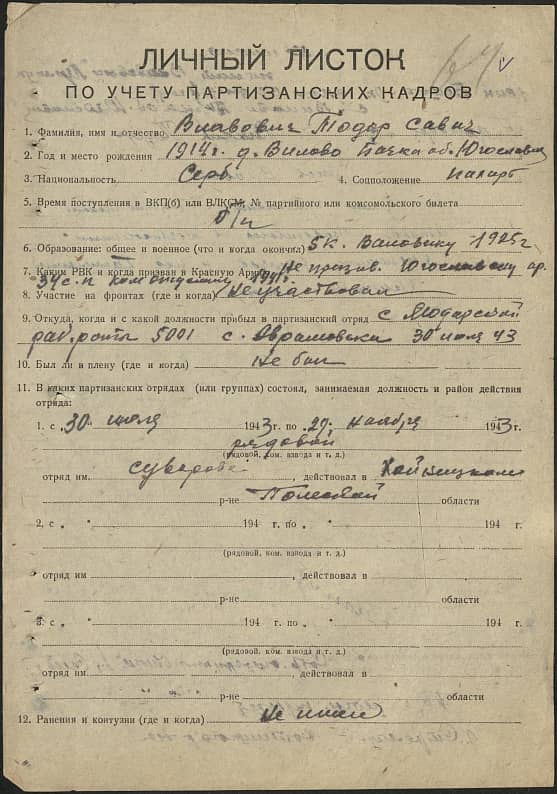 ЛИЧНЫЙ ЛИСТОК
ПО УЧЕТУ ПАРТИЗАНСКИХ КАДРОВ
1. Фамилия, имя и отчество Влавович Тодар Савич
2. Год и место рождения 1914 г. д. Вилово Бачка об. Югославия
3. Национальность Серб 4. Соцположение
5. Время поступления в ВКП(б) или ВЛКСМ, № партийного или комсомольского билета
б/п
6. Образование: общее и военное (что и когда окончил) 5 к. 1925 г
7. Каким РВК и когда призван в Красную Армию Не призов. Югославскую ар.
34 с. п 1941 г.
8. Участие на фронтах (где и когда) Не участвовал
9. Откуда, когда и с какой должности прибыл в партизанский отряд с
раб. роты 5001 с. Аврамовка 30 июля 43
10. Был ли в плену (где и когда) Не был
11. В каких партизанских отрядах (или группах) состоял, занимаемая должность и район действия
отряда:
1. с „30“ июля 1943 г. по „29“ ноября 1943 г.
рядовой
(рядовой, ком. взвода и т. д.)
отряд им суворова, действовал в Хойницком
р-не Полесской области
2. с „ “ 194 г. по „ “ 194 г.
(рядовой, ком. взвода и т. д.)
отряд им , действовал в
р-не области
3. с „ “ 194 г. по „ “ 194 г.
(рядовой, ком. взвода и т. д.)
отряд им , действовал в
р-не области
12. Ранения и контузии (где и когда) Не имел